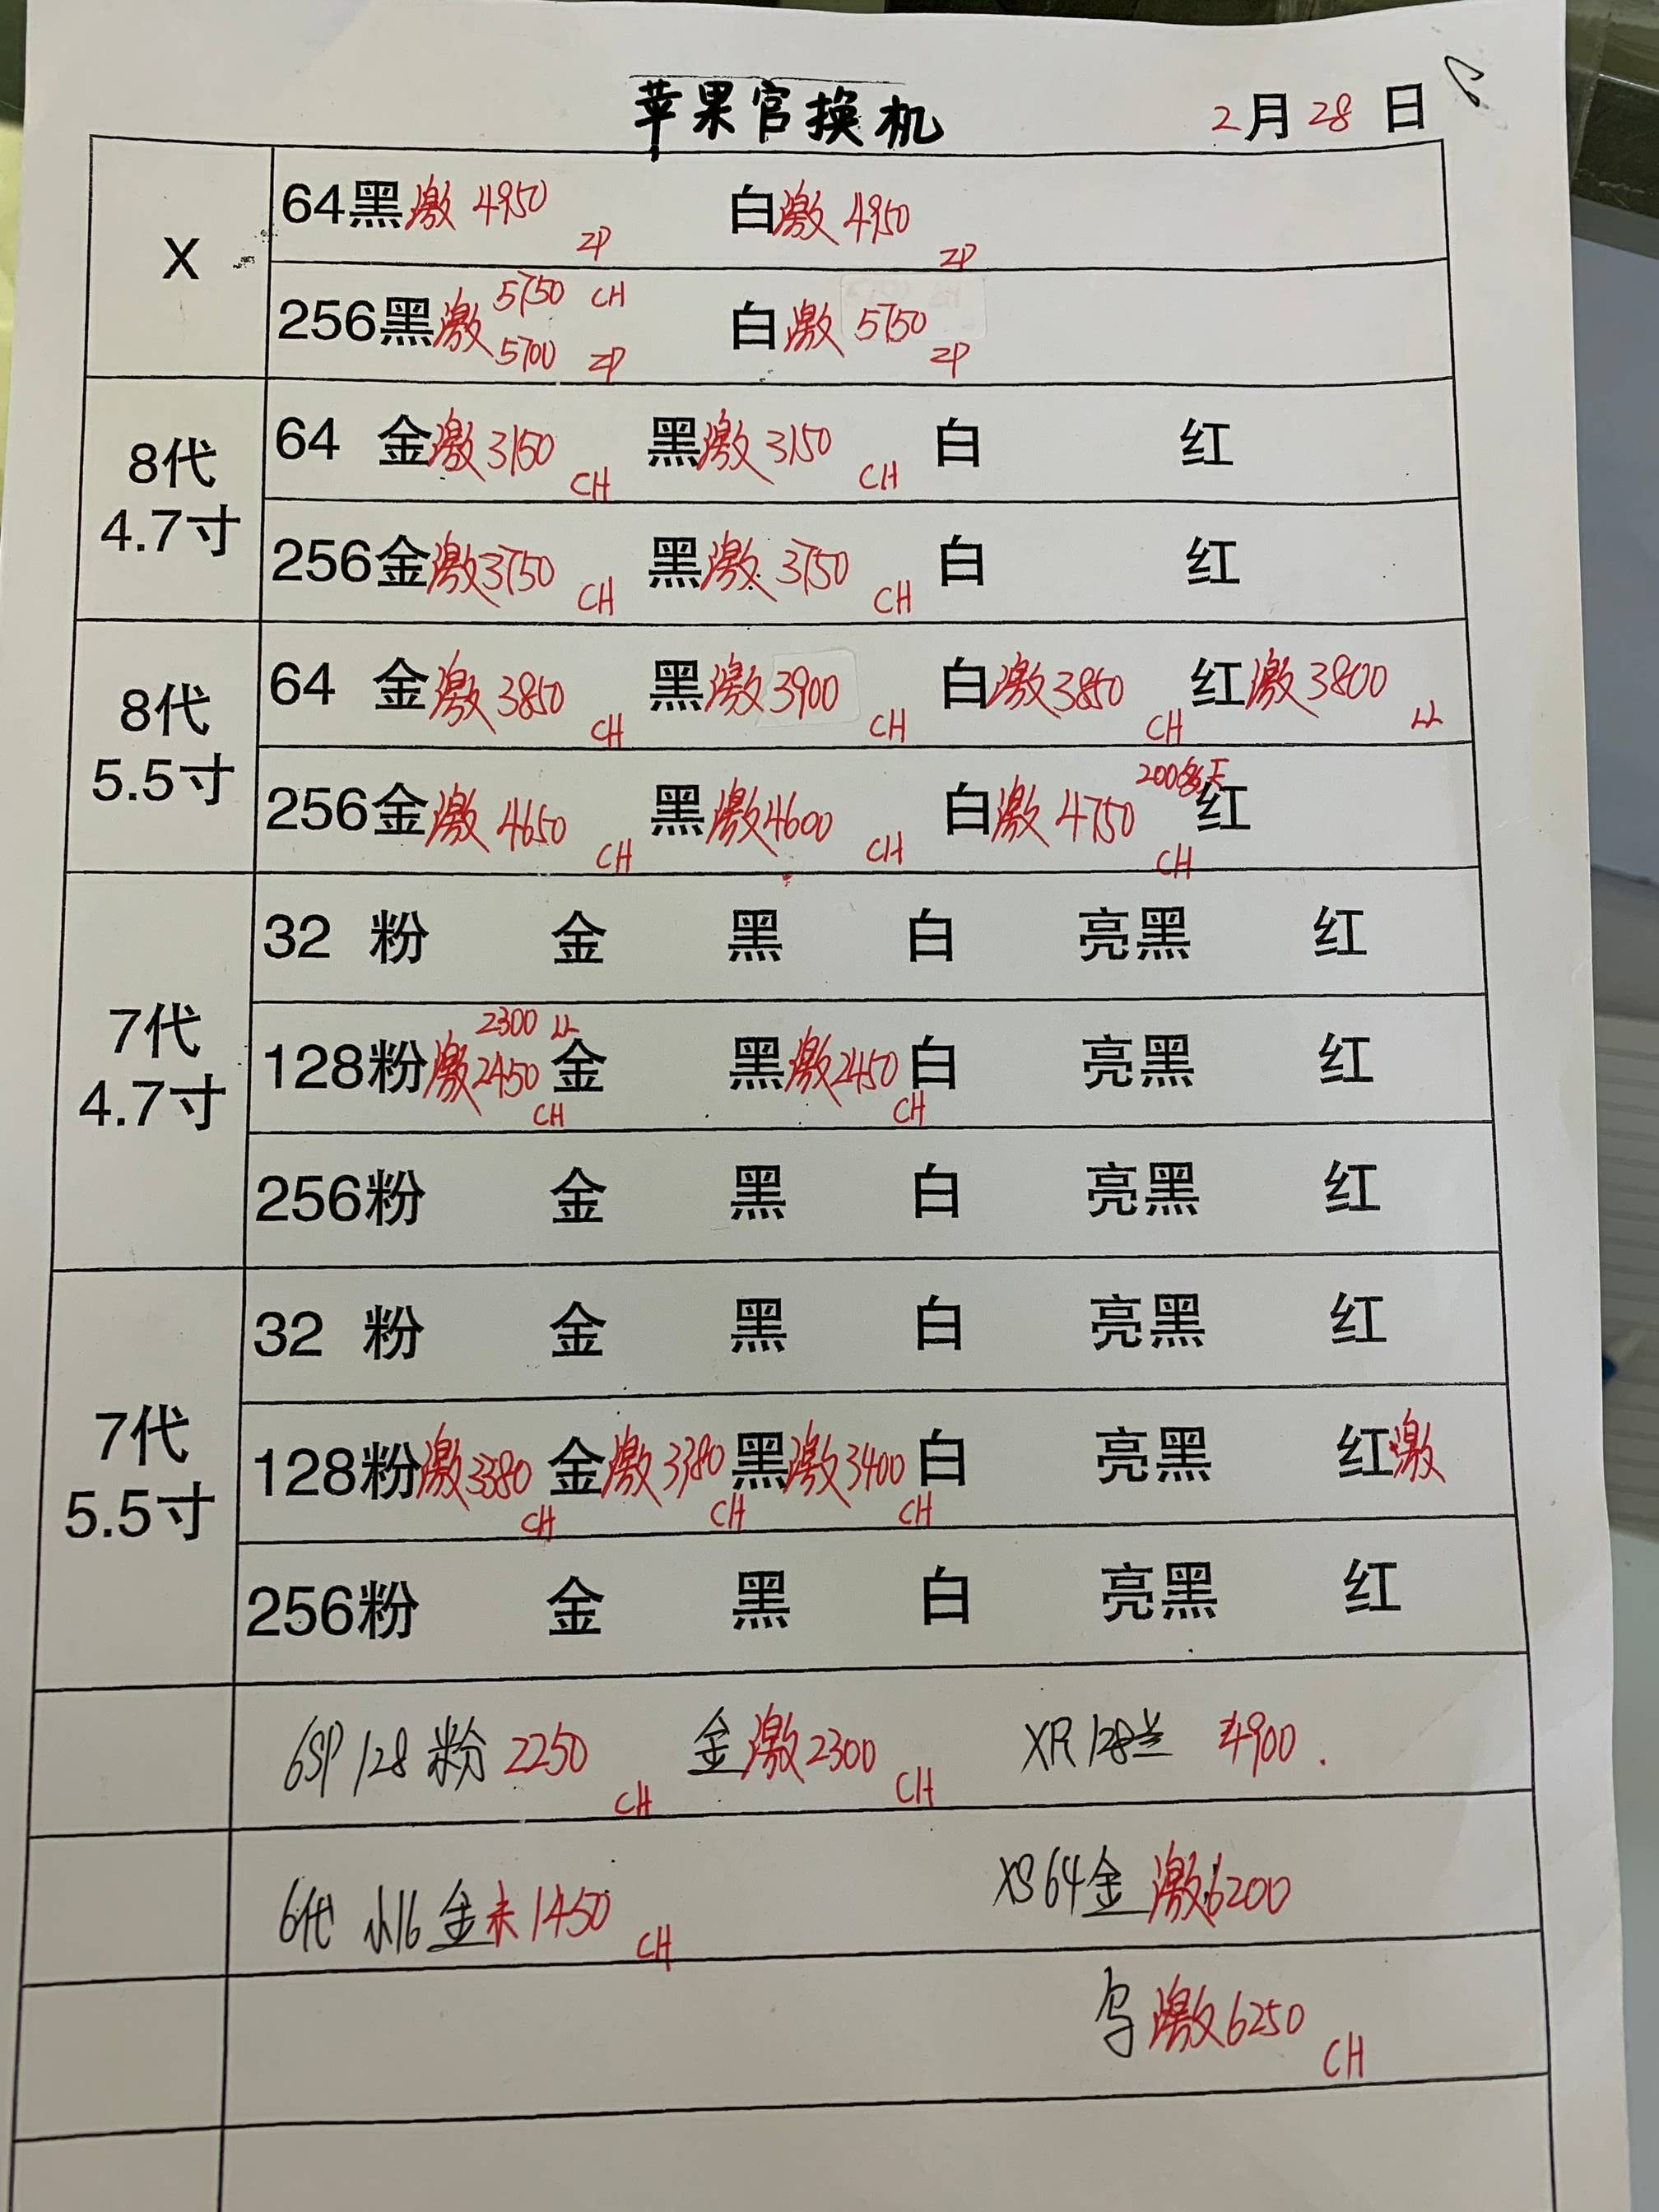 苹果官换机 2月28日
X
64黑激4950 ZP 白激4950 ZP
256黑激5750 CH 5700 ZP 白激5750 ZP
8代
4.7寸
64 金激3150 CH 黑激3150 CH 白 红
256金激3750 CH 黑激3750 CH 白 红
8代
5.5寸
64 金激3850 CH 黑激3900 CH 白激3850 CH 红激3800 LL
256金激4650 CH 黑激4600 CH 白激4750 CH 200多天 红
7代
4.7寸
32 粉 金 黑 白 亮黑 红
128粉激2300 LL 2450 CH 金 黑激2450 CH 白 亮黑 红
256粉 金 黑 白 亮黑 红
7代
5.5寸
32 粉 金 黑 白 亮黑 红
128粉激3380 CH 金激3380 CH 黑激3400 CH 白 亮黑 红激
256粉 金 黑 白 亮黑 红
6SP 128 粉 2250 CH 金激2300 CH XR 128兰 4900.
6代 小16 金未1450 CH XS 64金 激6200
激6250 CH